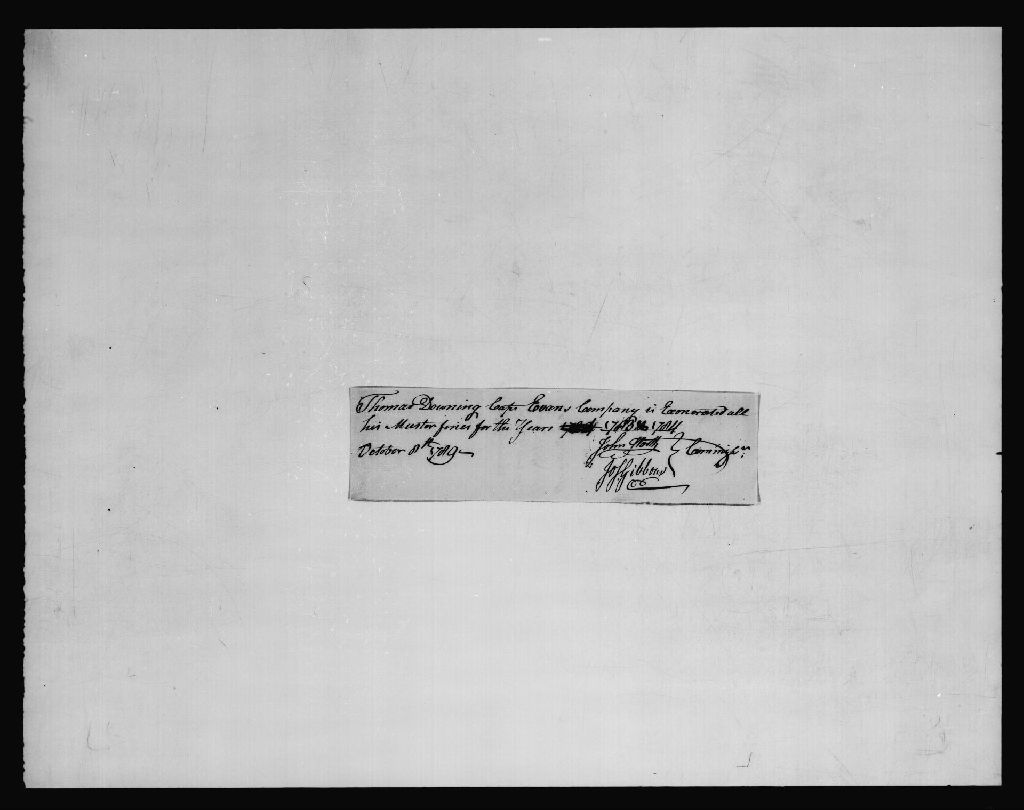 Thomas Downing Capt Evans Company is Exonerated all
his Muster fines for the Years 1783 & 1784
October 8th 1789
John
Jos Gibbons